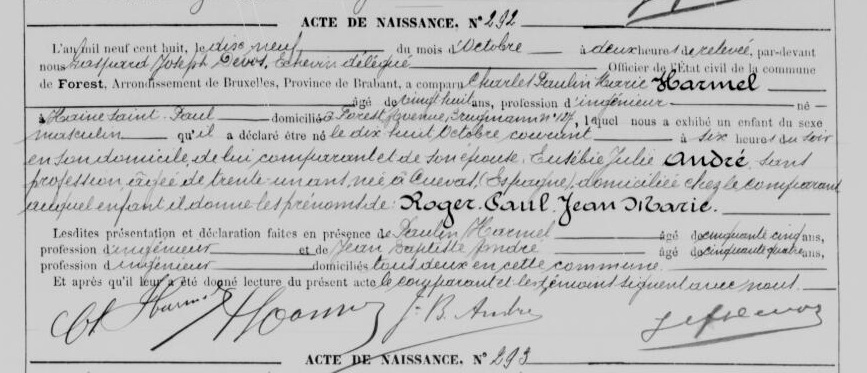 ACTE DE NAISSANCE, N° 292
L'an mil neuf cent huit, le dix neuf du mois d'Octobre à deux heures de relevée, par-devant
nous Gaspard Joseph Devos, Echevin délégué Officier de l'État civil de la commune
de Forest, Arrondissement de Bruxelles, Province de Brabant, a comparu Charles Paulin Marie Harmel
âgé de vingt huit ans, profession d'ingénieur né
à Haine Saint-Paul domicilié à Forest, Avenue Brugmann N° 127, lequel nous a exhibé un enfant du sexe
masculin qu'il a déclaré être né le dix huit Octobre courant à six heures du soir
en son domicile, de lui comparant et de son épouse, Eusébie Julie André, sans
profession, âgée de trente-un ans, née à Cuevas, (Espagne), domiciliée chez le comparant
auquel enfant il donne les prénoms de: Roger-Paul-Jean Marie.
Lesdites présentation et déclaration faites en présence de Paulin Harmel âgé de cinquante cinq ans,
profession d'ingénieur et de Jean Baptiste André âgé de cinquante quatre ans,
profession d'ingénieur domiciliés tous deux en cette commune.
Et après qu'il leur a été donné lecture du présent acte le comparant et les témoins signent avec nous.
Ch Harmel J-B. André
ACTE DE NAISSANCE, N° 293